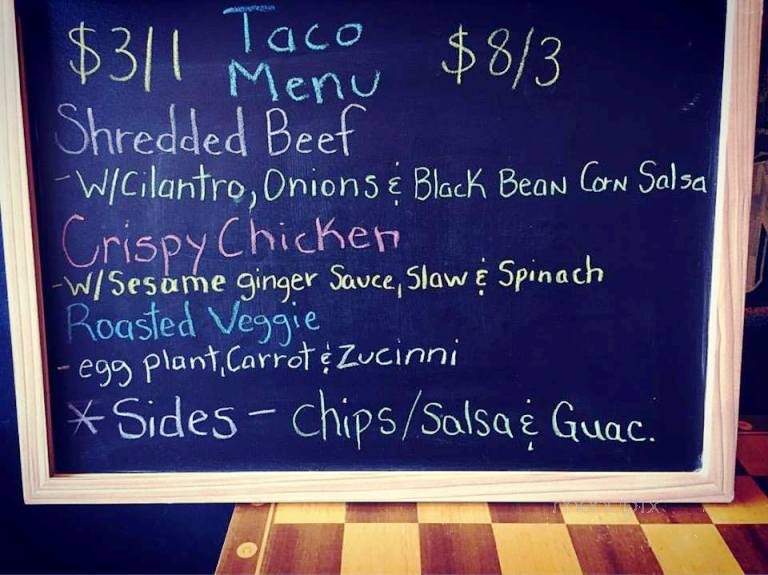 $3/1 Taco $8/3
Menu
Shredded Beef
- W/Cilantro, Onions & Black Bean Corn Salsa
Crispy Chicken
- W/Sesame ginger Sauce, Slaw & Spinach
Roasted Veggie
- egg plant, Carrot & Zucinni
* Sides - Chips/Salsa & Guac.